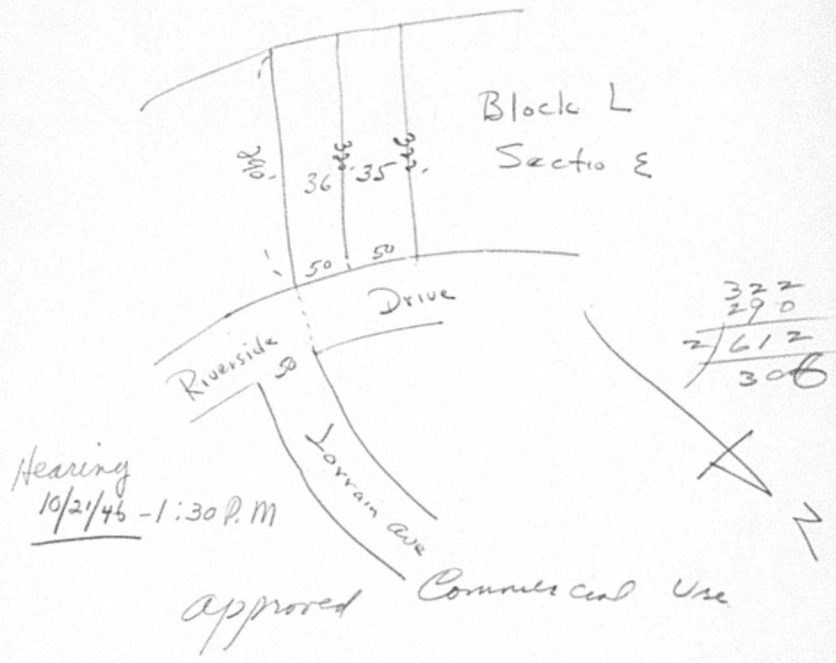 Block L
Sectio E
290'
36
35
50
50
Riverside Drive
50
Lorrain Ave
322
290
2/612
306
Hearing
10/21/46 - 1:30 P.M
N
approved Commercial Use